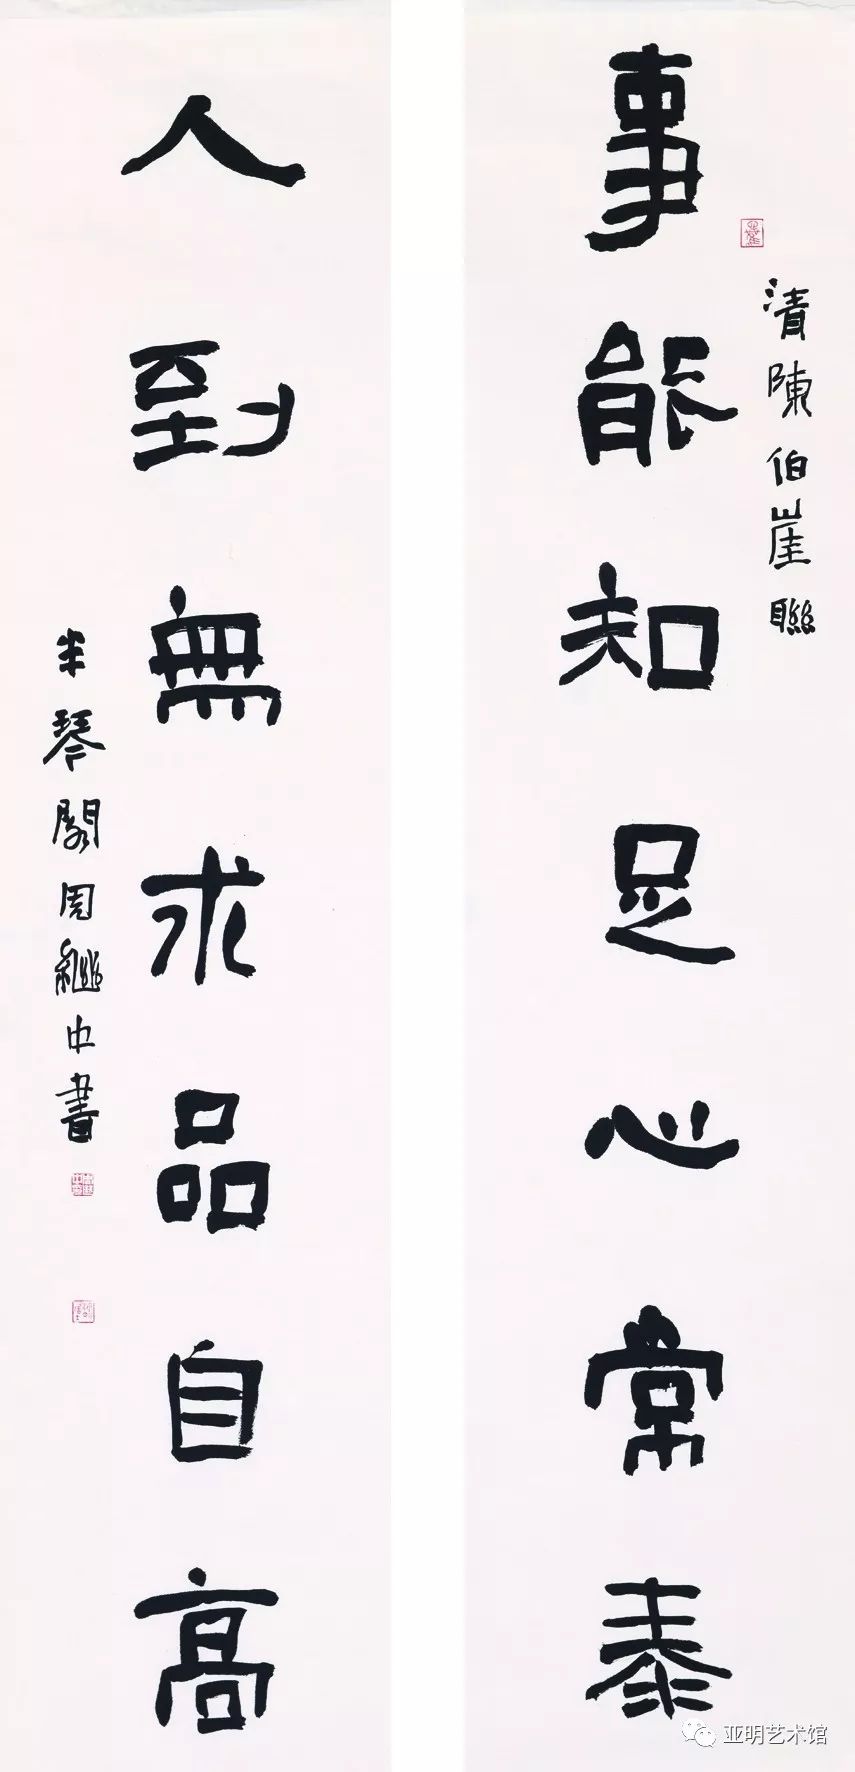 事能知足心常泰
清陳伯崖聯
人到無求品自高
半琴閣周繼中書
亚明艺术馆